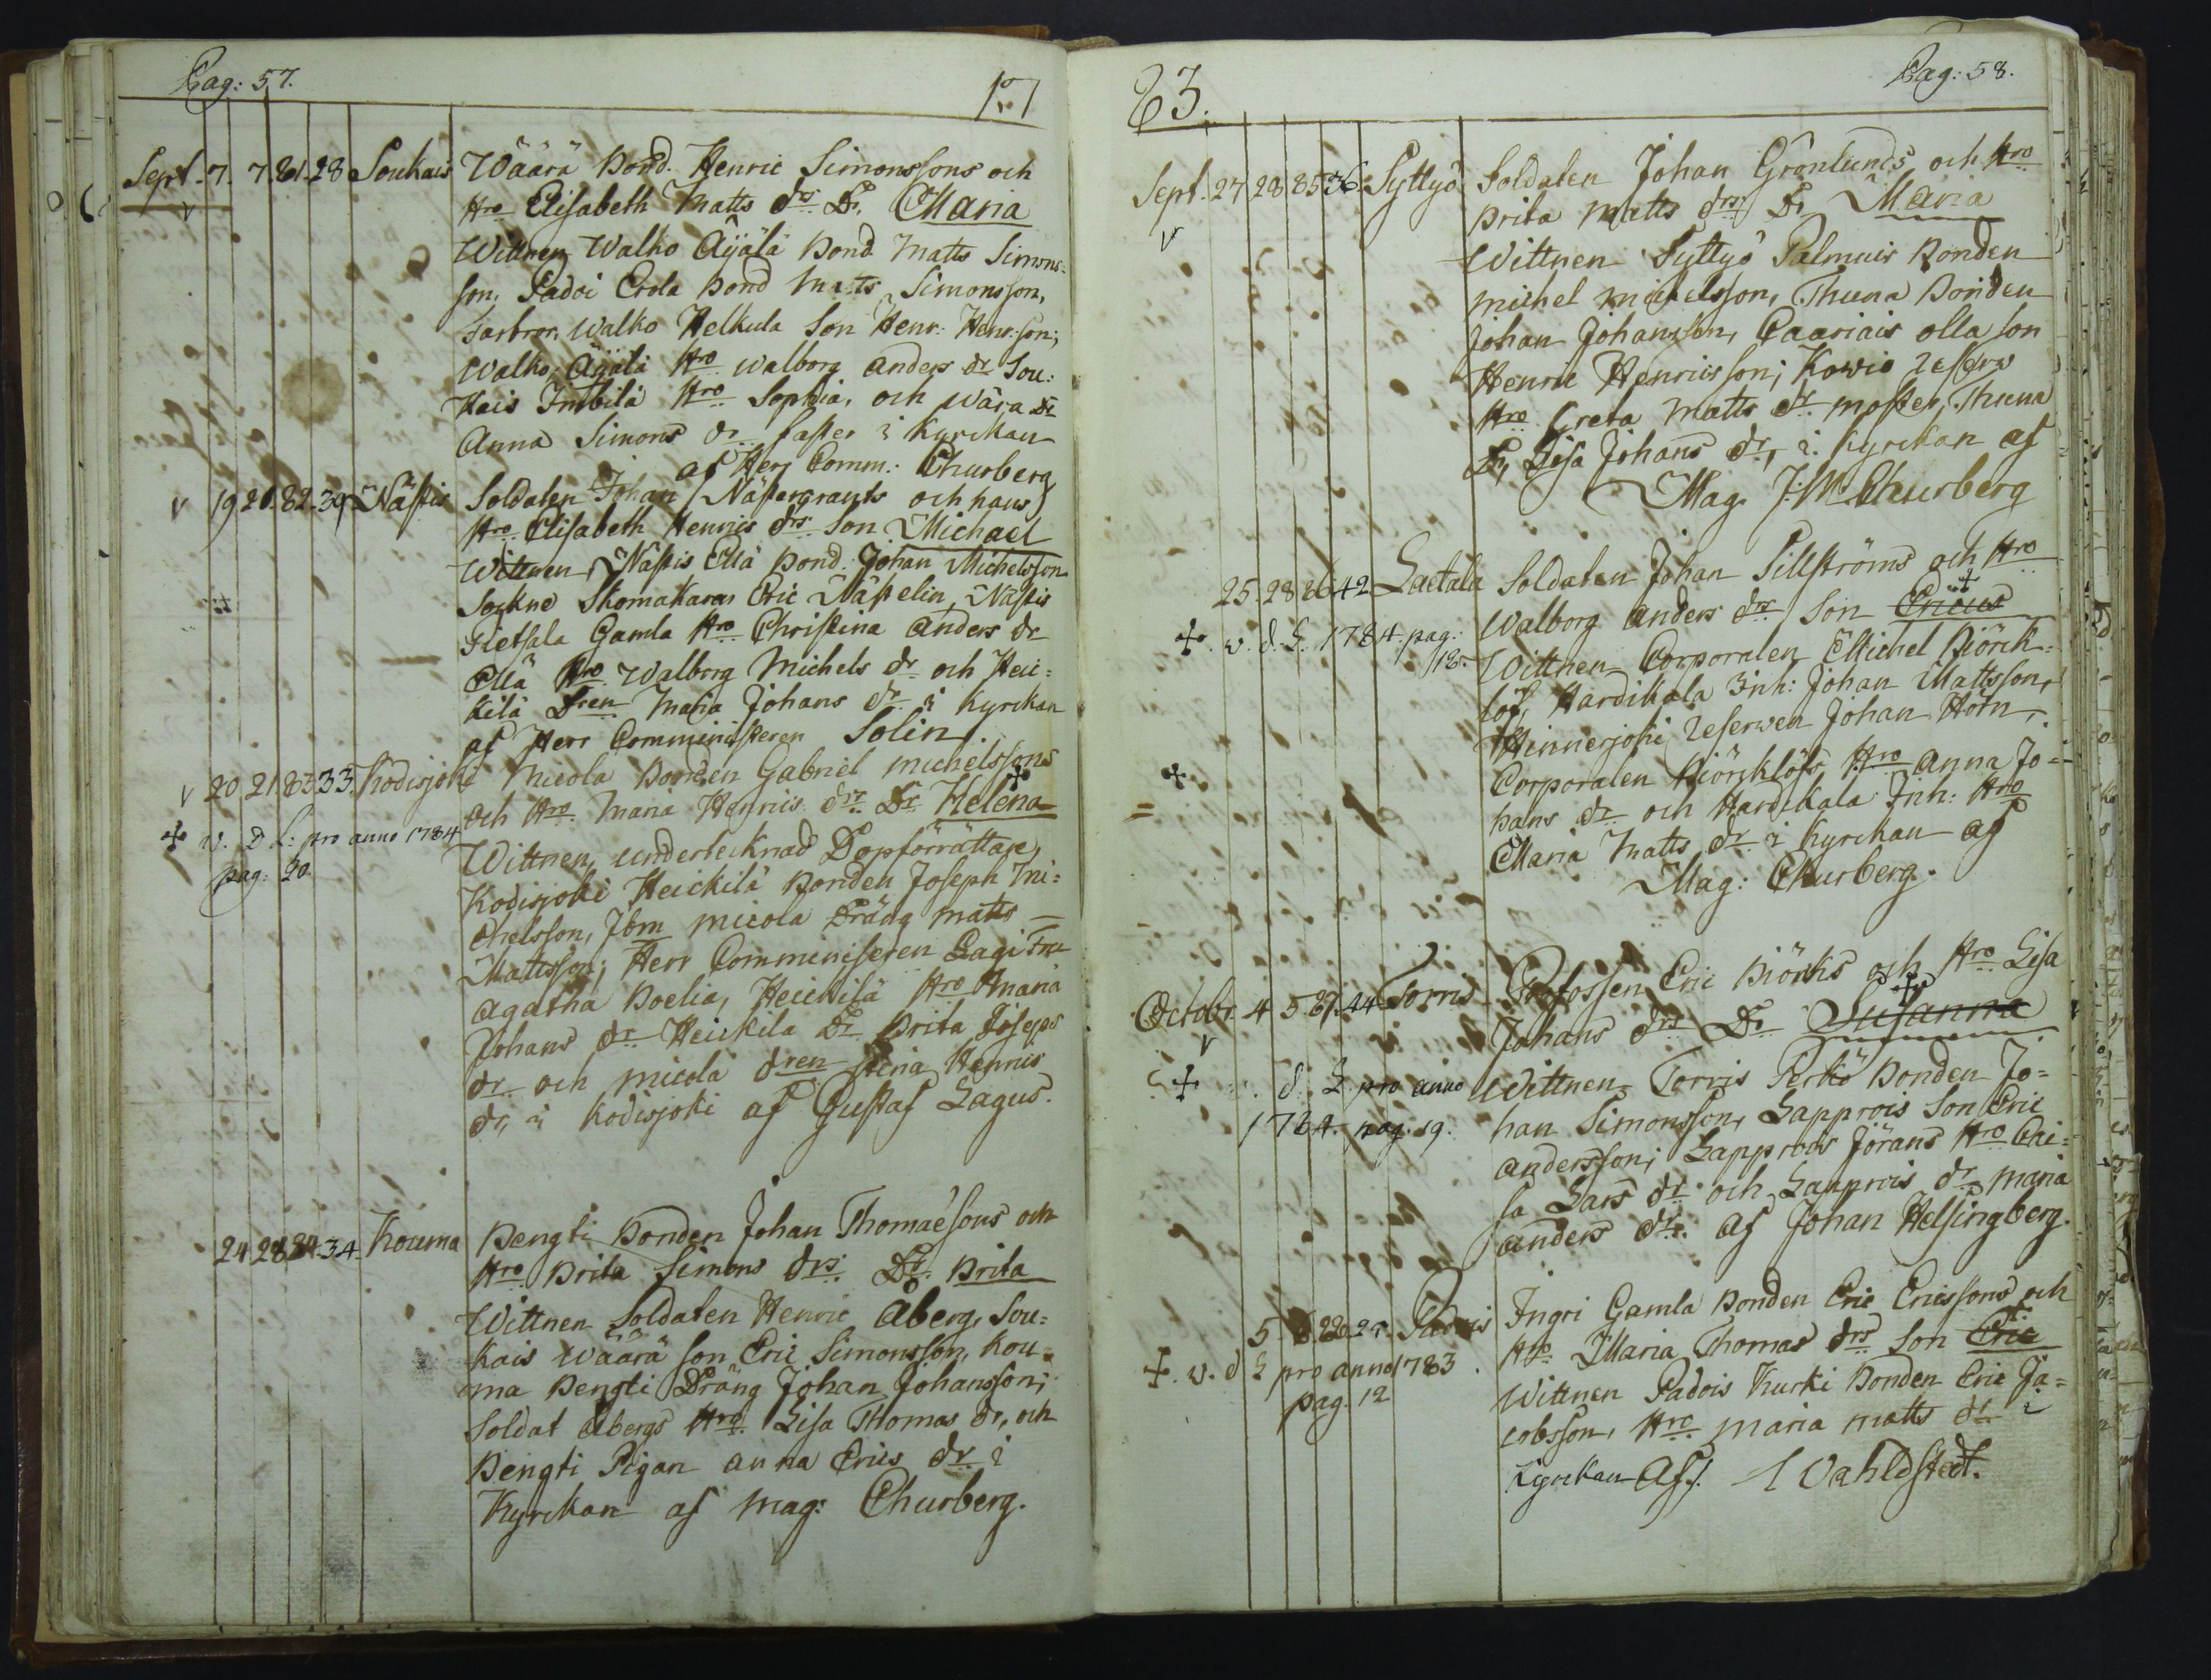 Pag: 57.
17
Sept. 7. 7. 81. 28 Soukais Wäärä Bond. Henric Simonssons och
Hro Elisabeth Matts drs Dr. Maria
Wittnen Walko Äijälä Bond Matts Simons-
son, Padoi Erola Bond Matts Simonsson,
Farbror, Walko Helkula Son Henr: Henr:son;
Walko Äijälä Hro Walborg Anders dr Sou:
kais Inbilä Hro Sophia, och Wära Dr
Anna Simons dr faster i Kyrckan
af Herr Comm: Churberg
v 19 20. 82. 39 Nästis Soldaten Johan Näste­grants och hans
Hro Elisabeth Henrics drs Son Michael
Wittnen, Nästis Ellä Bond. Johan Michelsson
Sockne Skomakaren Eric Nästelin, Nästis
Gamla Hro Christina Anders dr
Ellä Hro Walborg Michels dr och Heic=
kilä Dren Maria Johans dr i Kyrckan
af Herr Comministeren Solin.
v 20 21. 83. 33. Kodisjoki Micola Bonden Gabriel Michelssons
och Hro Maria Henrics drs Dr Helena
v. D. L: pro anno 1784
pag: 20.
Wittnen, undertecknad Dopförrättare,
Kodisjoki Heickilä Bonden Joseph Mi=
chelsson, Ibm Micola Dräng Matts
Mattsson; Herr Comministeren Lagi Fru
Agatha Boelia, Heickilä Hro Maria
Johans dr Heickila Dr Brita Joseps
dr och Micola dren Stina Henrics
dr, i Kodisjoki af Gustaf Lagus.
24 28 84. 34. Kouma Bengti Bonden Johan Thomaesons och
Hro Brita Simons drs Dr. Brita
Wittnen Soldaten Henric Åberg, Sou=
kais Wäärä son Eric Simonsson, Kou=
ma Bengti Dräng Johan Johansson;
Soldat Åbergs Hro Lisa Thomas dr, och
Bengti Pigan Anna Erics dr i
Kyrckan af Mag: Churberg.
83.
Pag: 58.
Sept. 27 28 85 36 Syttyö Soldaten Johan Grönlunds och Hro
v
Brita Matts drs Dr Maria
Wittnen Syttyö Palmuis Bonden
Michel Michelsson, Thuna Bonden
Johan Johansson, Caariais Olla son
Henric Henricsson; Kowio reserv
Hro Greta Matts dr moster, Thuna
Dr, Lisa Johans dr, i Kyrckan af
Mag. J: W. Churberg
25. 28 86 42 Laetala Soldaten Johan Sillströms och Hro
Walborg Anders drs Son Ericus
v. d. L. 1784. pag:
18.
Wittnen Corporalen Michel Biörck=
löf, Hardikala Inh: Johan Mattsson,
Hinnerjoki Reserven Johan Hörn,
Corporalen Biörcklöfs Hro Anna Jo=
hans dr och Hardikala Inh: Hro
Maria Matts dr i Kyrckan af
Mag: Churberg.
Octobr. 4 5 87. 44 Torris Profossen Eric Biörks och Hro Lisa
v
Johans drs Dr Susanna
d. L. pro anno
1784. pag. 19.
Wittnen Torris Perkö Bonden Jo=
han Simonsson, Lapprois Son Eric
Andersson; Lapprois Jörans Hro Cai=
sa Lars dr och Lapprois dr Maria
Anders dr. af Johan Helsingberg.
5 Ingri Gamla Bonden Eric Ericssons och
Hro Maria Thomas drs Son Eric
v. d L pro anno 1783.
pag. 12
Wittnen Padois Kurki Bonden Eric Ja=
cobsson, Hro Maria Matts dr i
Kyrckan Af. J. Wahlstedt.